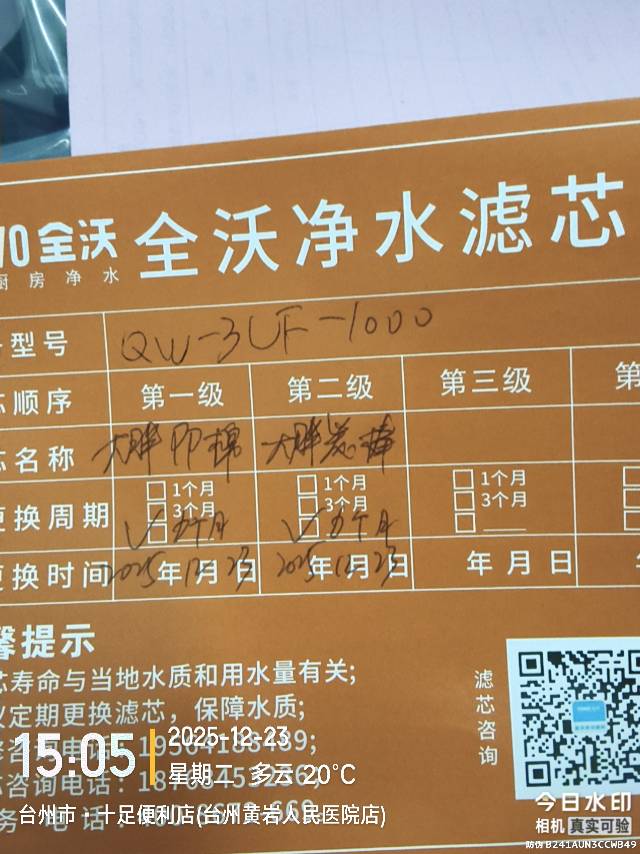 全沃 全沃净水滤芯
厨房净水
型号 QW-3UF-1000
顺序 第一级 第二级 第三级 第
名称 大胖PP棉 大胖炭棒
更换周期 1个月 1个月 1个月
3个月 3个月 3个月
六个月 六个月
更换时间 2025年12月23日 2025年12月23日 年 月 日
馨提示
芯寿命与当地水质和用水量有关;
议定期更换滤芯，保障水质;
滤芯咨询
15:05
2025-12-23
星期二 多云 20°C
台州市·十足便利店(台州黄岩人民医院店)
今日水印
相机 真实可验
防伪 B241AUN3CCWB49